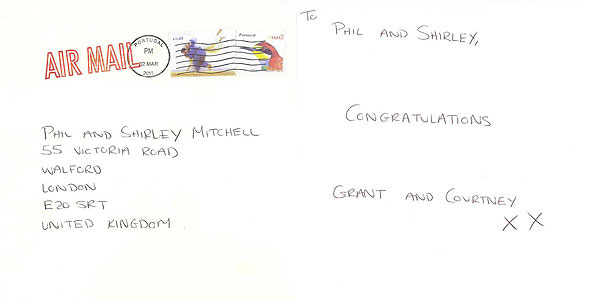 AIR MAIL
PORTUGAL
PM
02 MAR
2011
Portugal
PHIL AND SHIRLEY MITCHELL
55 VICTORIA ROAD
WALFORD
LONDON
E20 5RT
UNITED KINGDOM
To
PHIL AND SHIRLEY,
CONGRATULATIONS
GRANT AND COURTNEY
X X